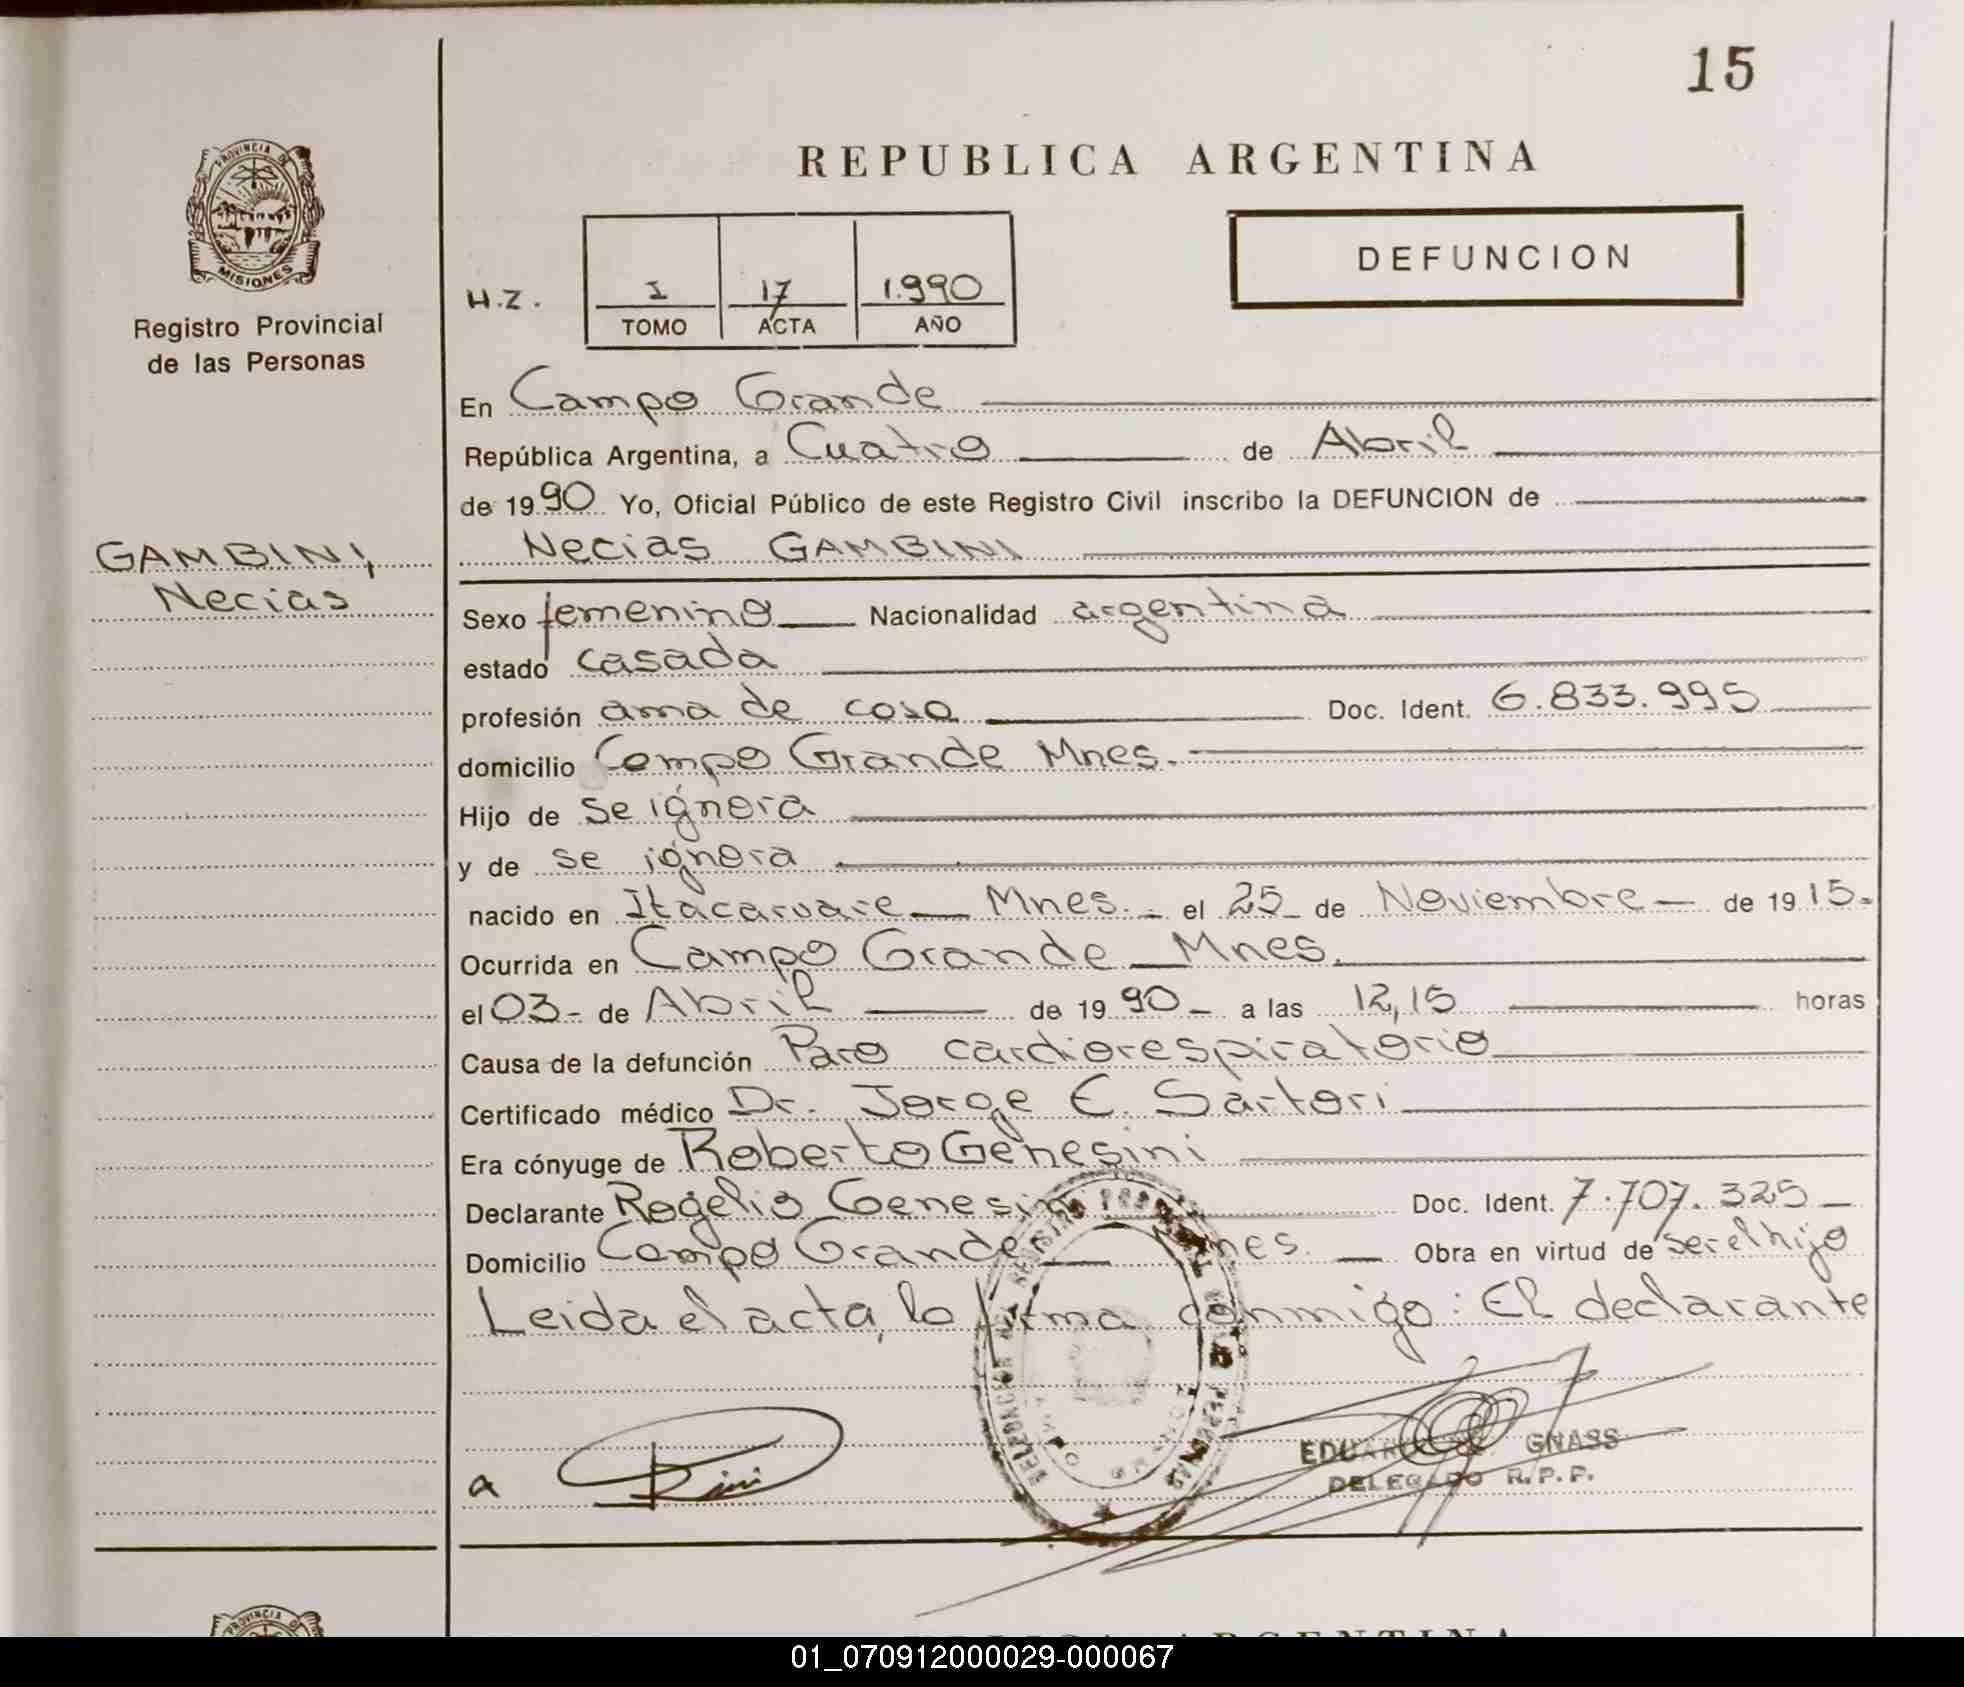 15
PROVINCIA DE
MISIONES
Registro Provincial
de las Personas
REPUBLICA ARGENTINA
DEFUNCION
H.Z.
I 17 1.990
TOMO ACTA AÑO
En Campo Grande
República Argentina, a Cuatro de Abril
de 1990 Yo, Oficial Público de este Registro Civil inscribo la DEFUNCION de
GAMBINI,
Necias
Necias GAMBINI
Sexo femenino Nacionalidad argentina
estado casada
profesión ama de casa Doc. Ident. 6.833.995
domicilio Campo Grande Mnes.
Hijo de se ignora
y de se ignora
nacido en Itacaruare Mnes. el 25 de Noviembre de 1915
Ocurrida en Campo Grande Mnes.
el 03 de Abril de 1990 a las 12,15 horas
Causa de la defunción Paro cardiorespiratorio
Certificado médico Dr. Jorge E. Sartori
Era cónyuge de Roberto Genesini
Declarante Rogelio Genesini Doc. Ident. 7.707.325
Domicilio Campo Grande Mnes. Obra en virtud de ser el hijo
Leida el acta, lo firma conmigo: El declarante
EDUARDO GNASS
DELEGADO R.P.P.
a
PROVINCIA DE
ARGENTINA
01_070912000029-000067